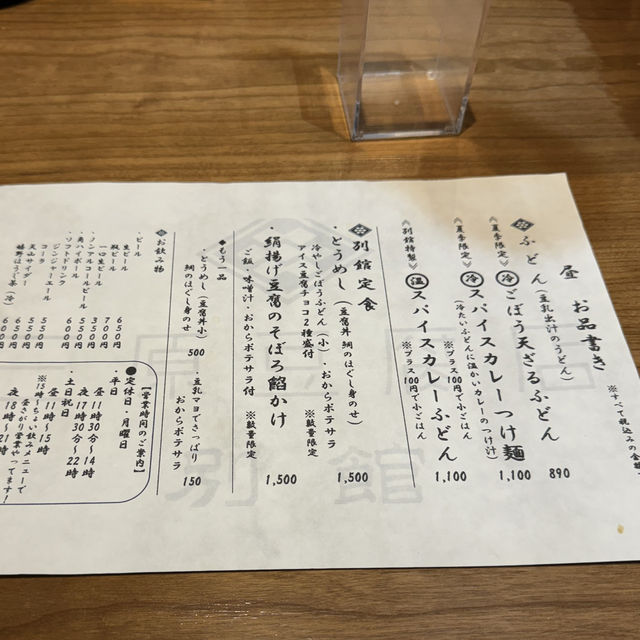 昼 お品書き
※すべて税込みの金額
ふどん(豆乳出汁のうどん)
《夏季限定》
冷 ごぼう天ざるふどん 890
《夏季限定》
冷 スパイスカレーつけ麺 1,100
(冷たいふどんに温かいカレーのつけ汁)
※プラス100円で小ごはん
《別館特製》
温 スパイスカレーふどん 1,100
※プラス100円で小ごはん
別館定食
・とうめし(豆腐丼 鯛のほぐし身のせ) 1,500
冷やしごぼうふどん(小)
アイス豆腐チョコ2種盛付
※数量限定
・絹揚げ豆腐のそぼろ餡かけ 1,500
ご飯・味噌汁・おからポテサラ付
※数量限定
◆もう一品
・とうめし(豆腐丼小) 500
鯛のほぐし身のせ
・豆乳マヨでさっぱり
おからポテサラ 150
お飲み物
・ビール
生ビール 650円
瓶ビール 700円
一口生ビール 350円
・ノンアルコールビール
・角ハイボール
・ソフトドリンク
ジンジャーエール
コーラ
天山サイダー
嬉野ほうじ茶(冷)
【営業時間のご案内】
●定休日・月曜日
・平日
昼 11時30分〜14時
夜 17時30分〜22時
・土日祝日
昼 11時〜15時
※15時〜ちょい飲みメニューで
昼さがり営業やってます!
夜 18時〜21時
別館